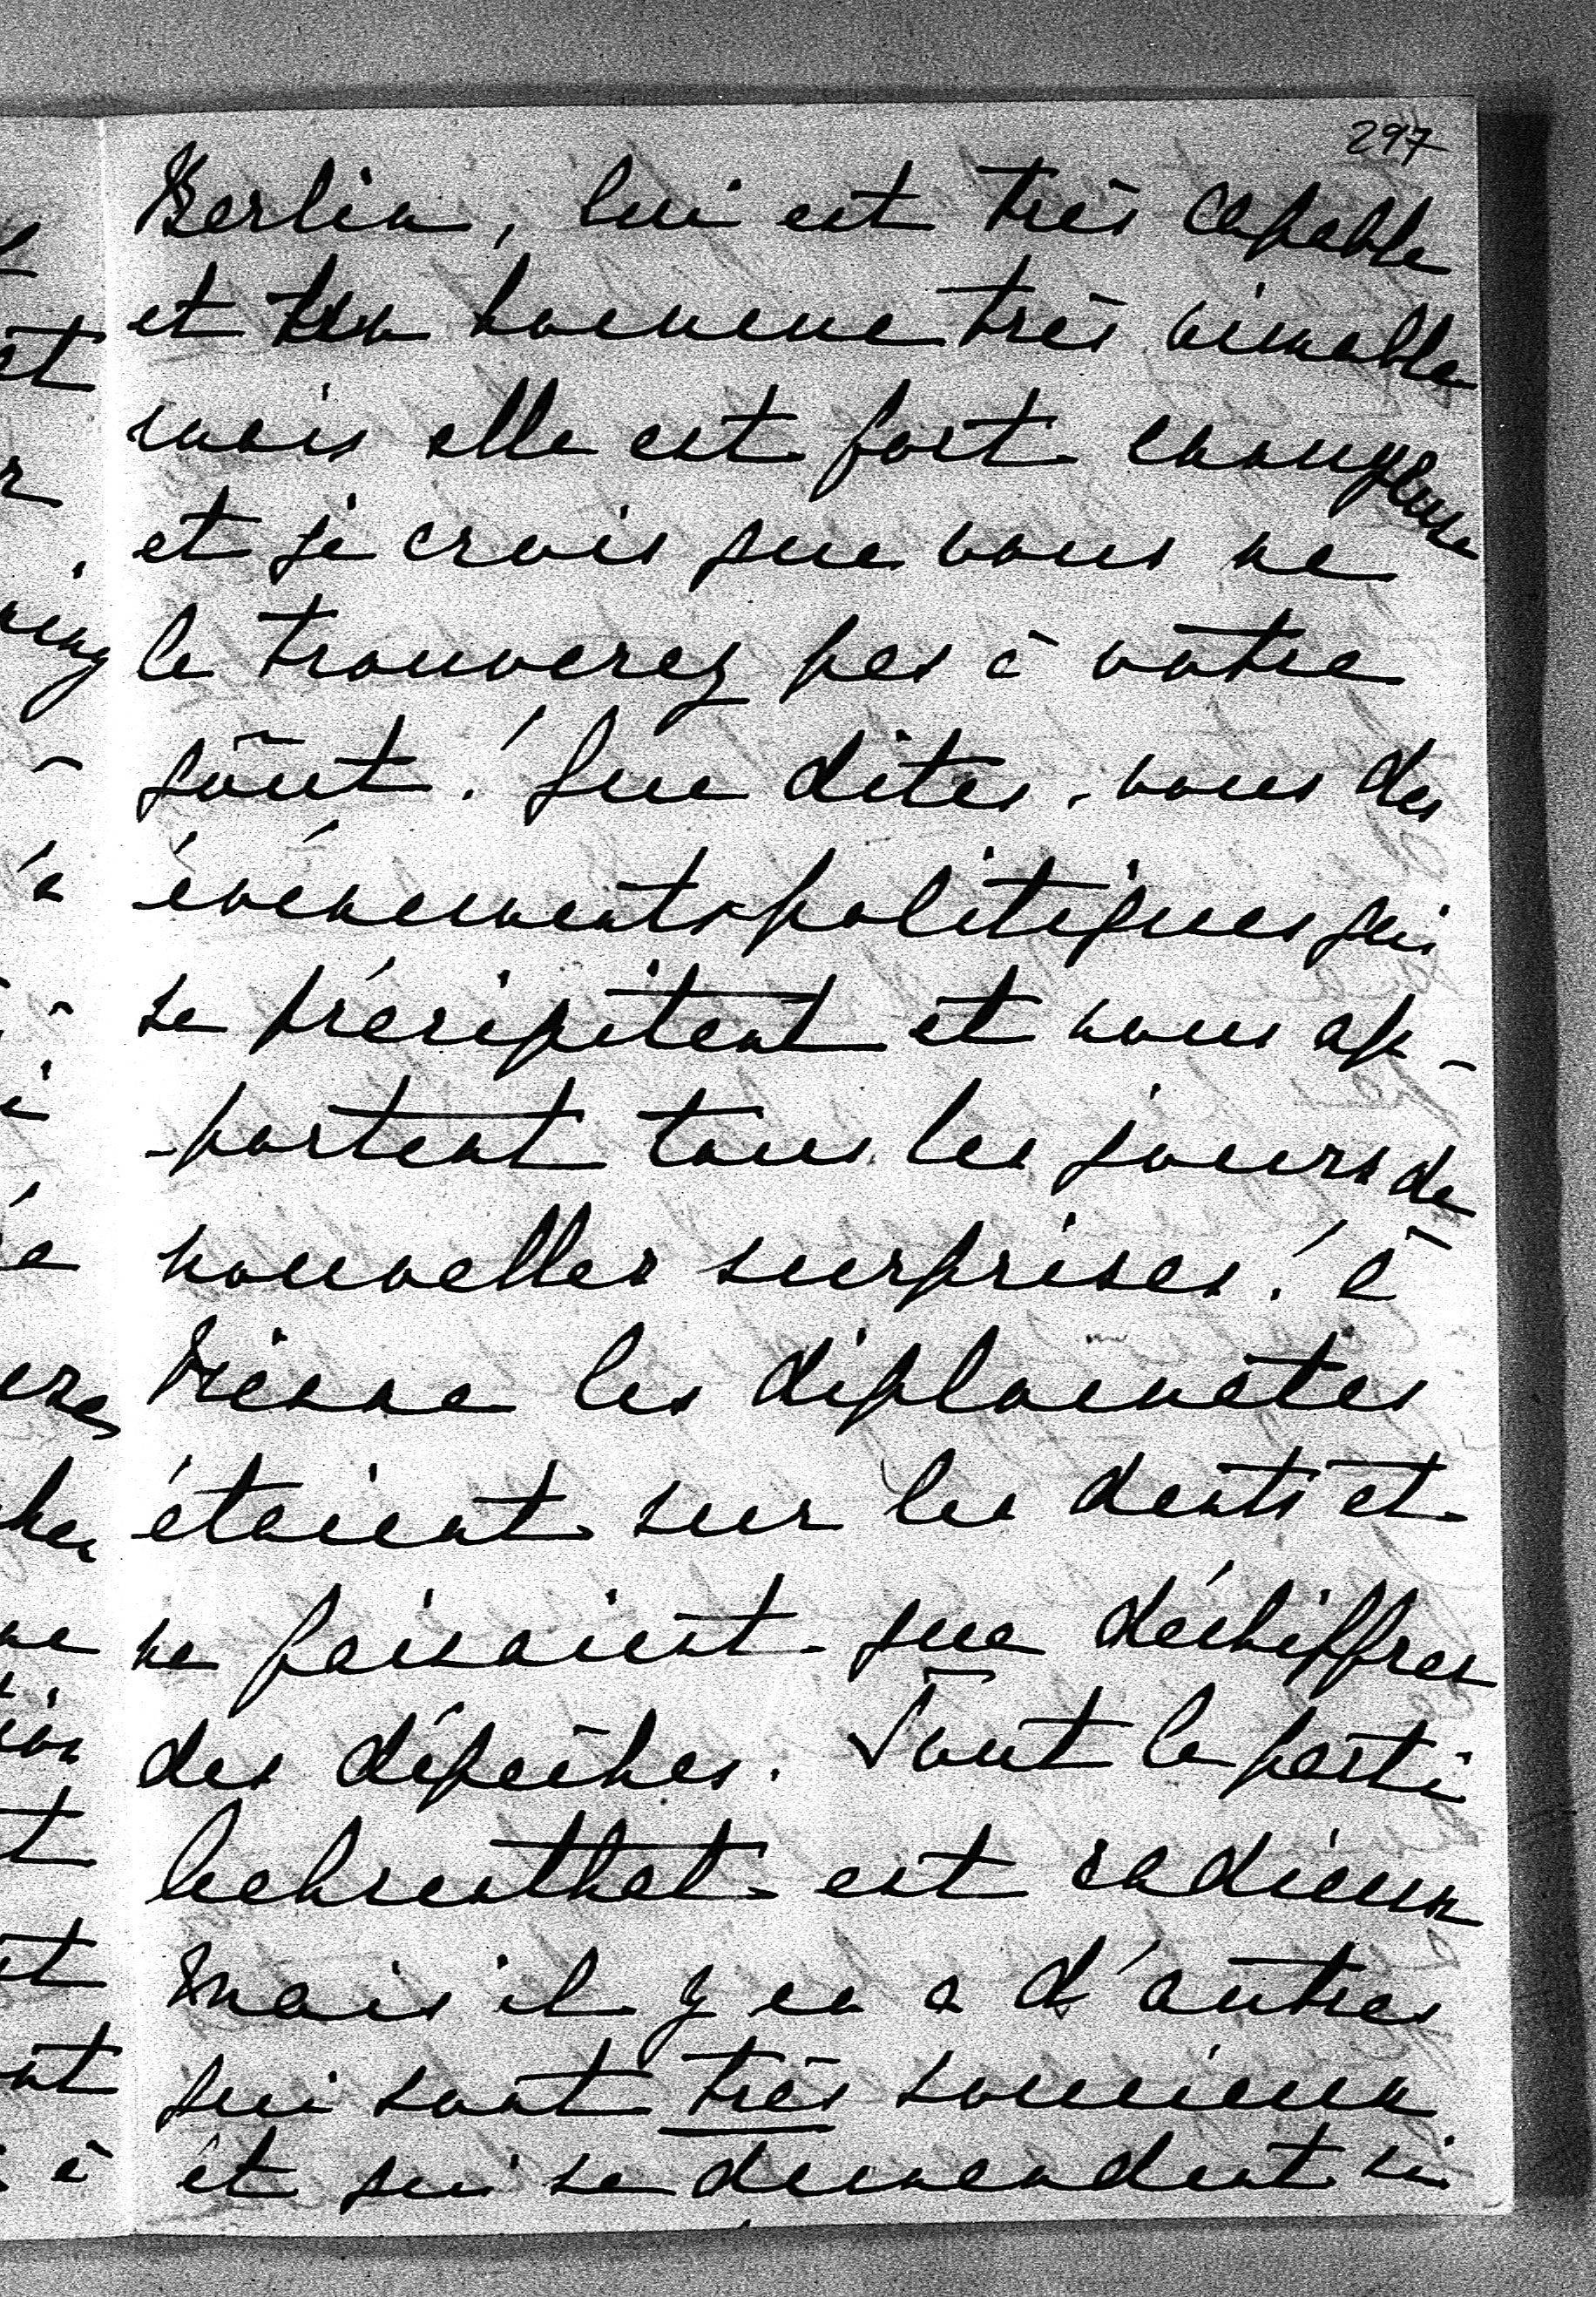 297
Berlin, lui est très capable
et un homme très aimable
mais elle est fort
et je crois que vous ne
le trouverez pas à votre
goût! Que dites-vous des
événements politiques qui
se précipitent et nous ap-
-portent tous les jours de
nouvelles surprises! à
Vienne les diplomates
étaient sur les dents et
ne faisaient que déchiffrer
des dépêches. Tout le parti
Aehrenthal est radieux
Mais il y en a d'autres
qui sont très soucieux
et qui se demandent si